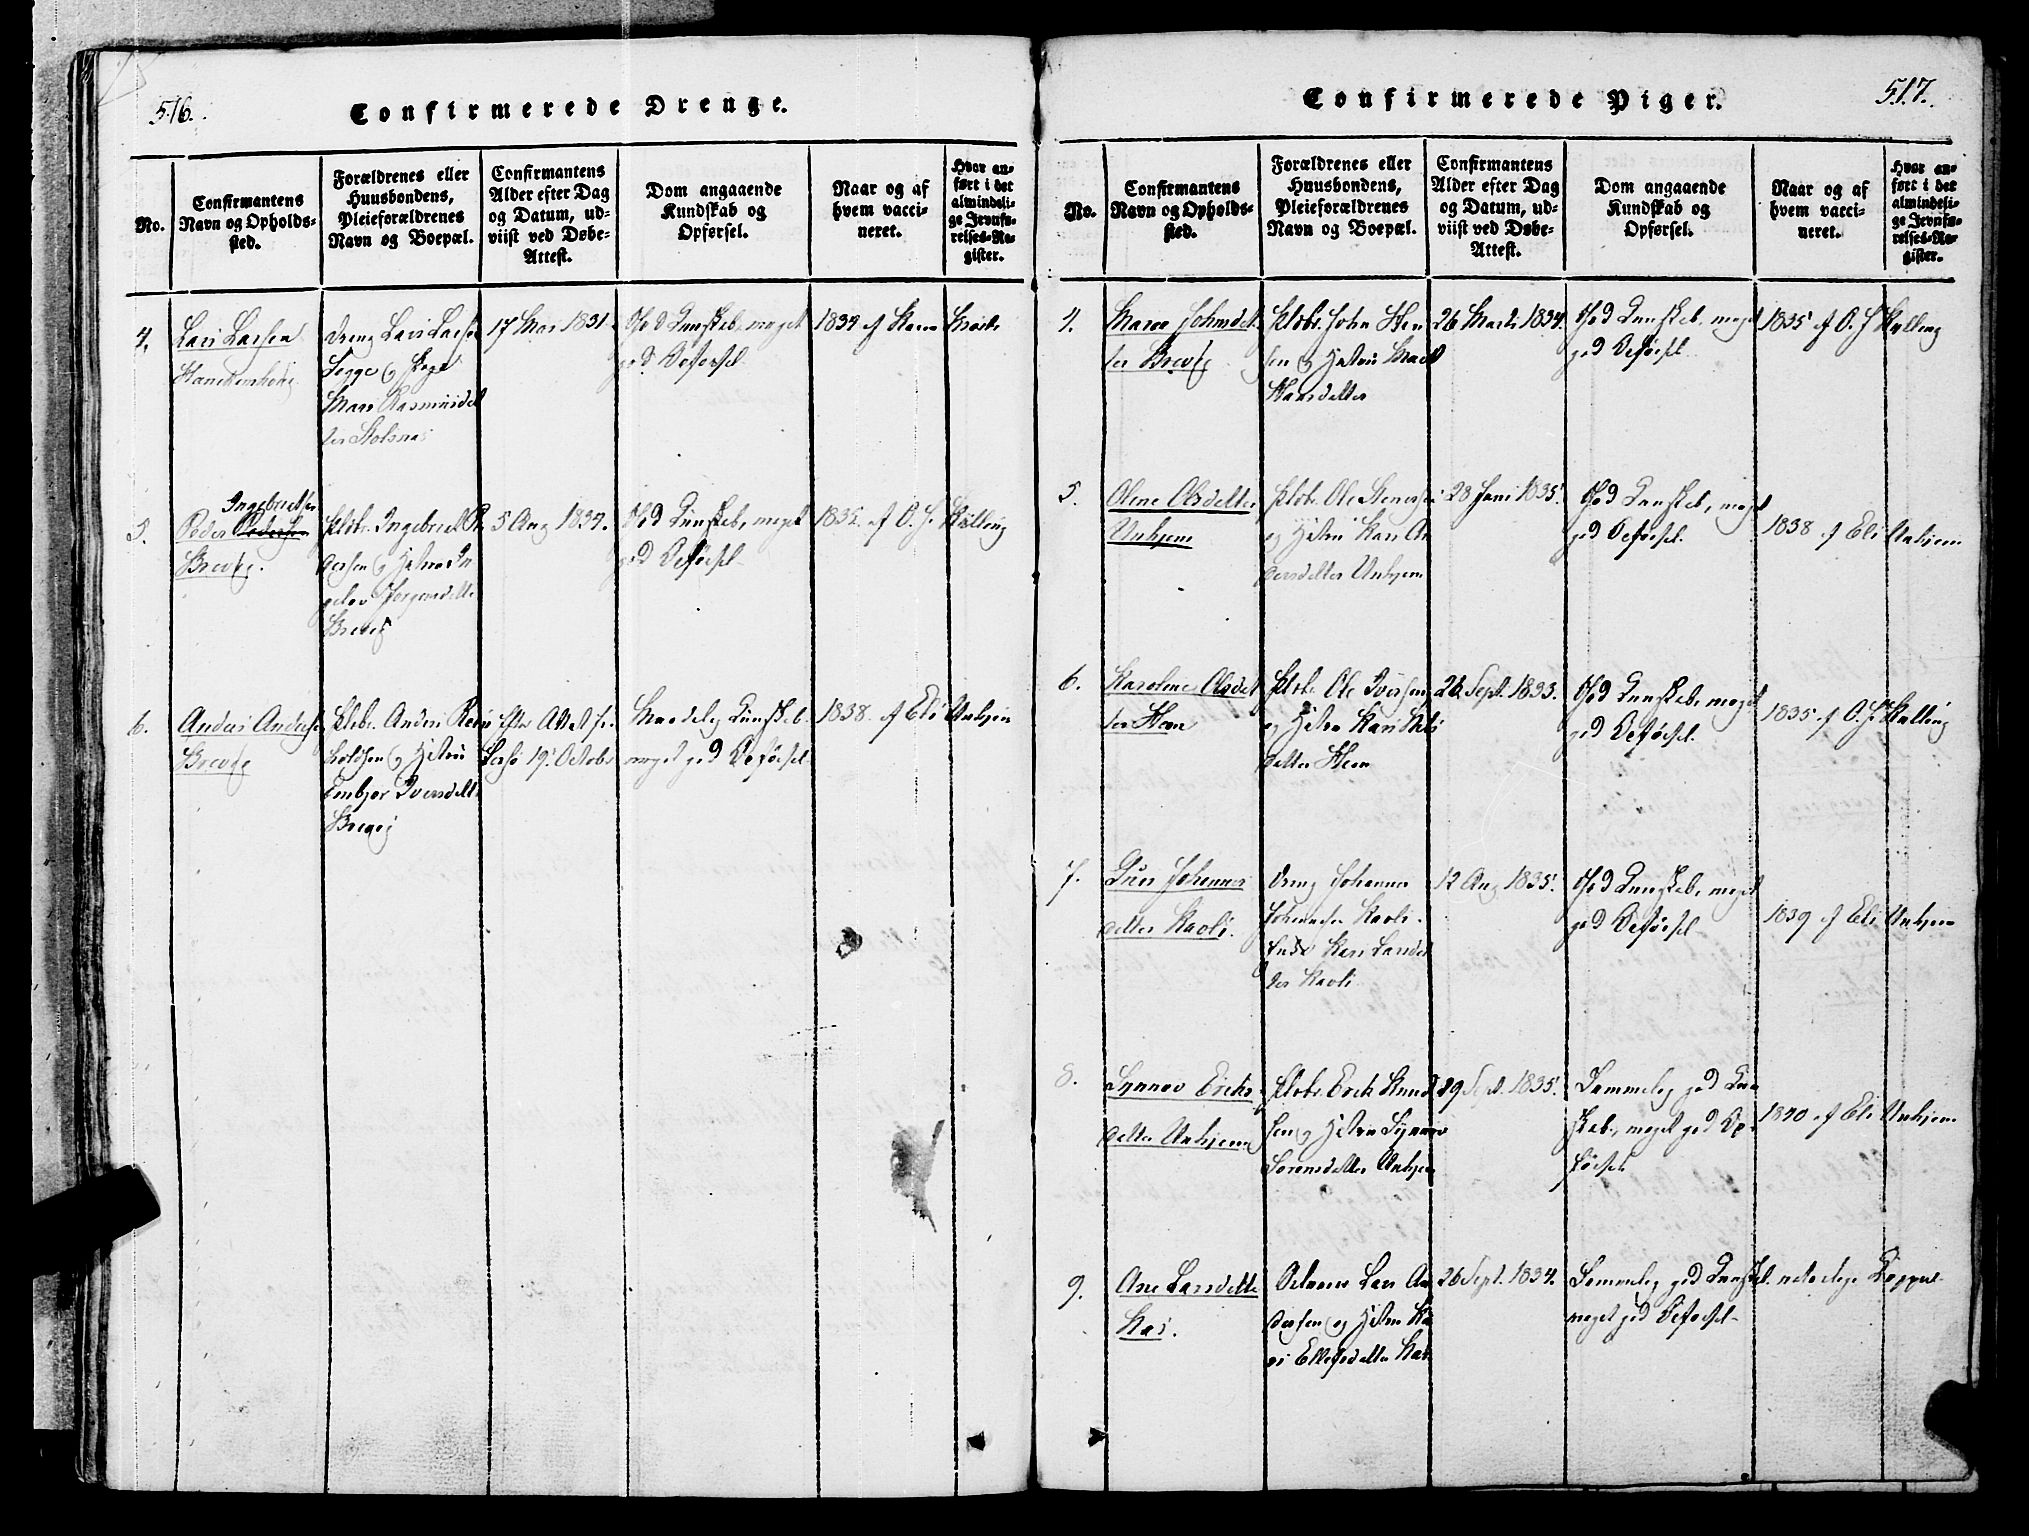 516.
Confirmerede Drenge.
No.
Confirmantens
Navn og Opholds-
sted.
Forældrenes eller
Huusbondens,
Pleieforældrenes
Navn og Boepæl.
Confirmantens
Alder efter Dag
og Datum, ud-
viist ved Døbe-
Attest.
Dom angaaende
Kundskab og
Opførsel.
Naar og af
hvem vacci-
neret.
Hvor an-
ført i det
almindeli-
ge Jevnfø-
relses-Re-
gister.
4.
Lars Larsen
Dreng Lars Larsen
Mari Rasmusdat
ter
17 Mar 1831.
God Kundskab, meget
god Opførsel
5.
Ingebrictsen
Peder Pedersen
Brevig.
Ingebrict Pe
dersen og Hstru In
Jørgensdatte
Brevig
5 Aug 1834.
God Kundskab, meget
god Opførsel
af O. J. Hælling
6.
Anders Anders
Brevig
Anders Rein
holdsen og Hstru
Embjør Iversdatt
Brevig
19. Octobr
Maadelig Kundskab
meget god Opførsel
1838. af Eli Unhjem
517.
Confirmerede Piger.
No.
Confirmantens
Navn og Opholds-
sted.
Forældrenes eller
Huusbondens,
Pleieforældrenes
Navn og Boepæl.
Confirmantens
Alder efter Dag
og Datum, ud-
viist ved Døbe-
Attest.
Dom angaaende
Kundskab og
Opførsel.
Naar og af
hvem vacci-
neret.
Hvor an-
ført i det
almindeli-
ge Jevnfø-
relses-Re-
gister.
4.
Maren Johnsdat
ter Brevig
John Han
sen og Hstru Marit
Hansdatter
26 Marts 1834.
God Kundskab, meget
god Opførsel
1835 af O. J. Hælling
5.
Olene Olsdatter
Unhjem
Ole Stenersen
og Hstru Kari An
dersdatter Unhjem
28 Juni 1835.
God Kundskab, meget
god Opførsel.
1838 af Eli Unhjem
6.
Karoline Olsdat
ter Hem
Ole Iversen
og Hstru Kari Nils
datter Hem
26 Sept. 1833.
God Kundskab, meget
god Opførsel.
1835 af O. J. Hælling
7.
Guri Johannes
datter Kavli.
Dreng Johannes
Johannesen Kavli.
Kari Larsdat
ter Kavli
12 Aug 1835.
God Kundskab, meget
god Opførsel
1839 af Eli Unhjem
8.
Synnev Ericks
datter Unhjem
Erick Knud
sen og Hstru Synnev
Sørensdatter Unhjem
29 Sept. 1835.
Temmelig god Kun
skab, meget god Op
førsel
1840 af Eli Unhjem
9.
Ane Larsdatte
Kas.
Lars An
dersen og Hstru Ka
ri Ellefsdatter Kas
26 Sept. 1834.
Temmelig god Kundskab.
meget god Opførsel